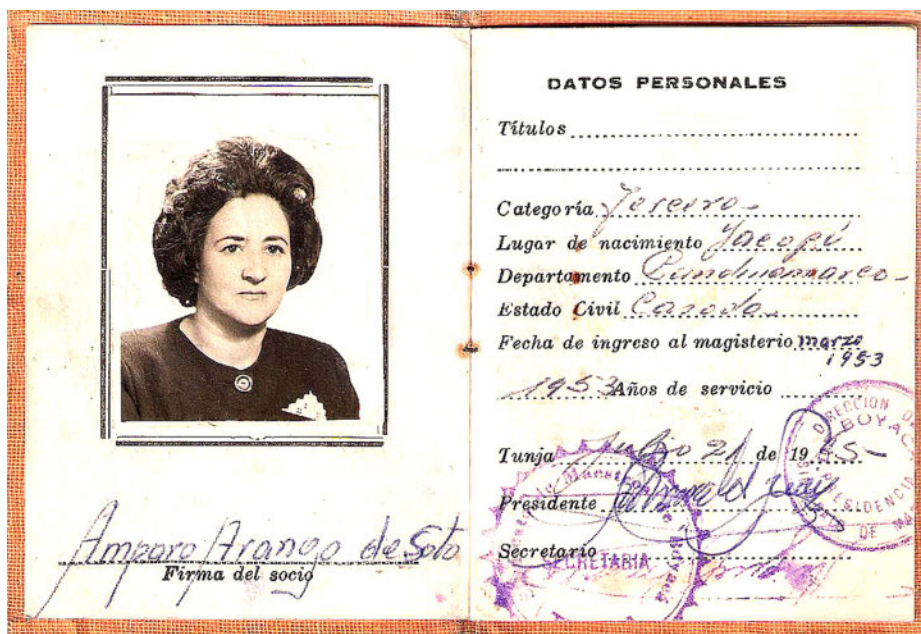 Amparo Arango de Soto
Firma del socio
DATOS PERSONALES
Títulos
Categoría Tercero -
Lugar de nacimiento Yacopí
Departamento Cundinamarca -
Estado Civil Casada -
Fecha de ingreso al magisterio marzo
1953
1953 Años de servicio
Tunja Julio 21 de 1965-
Presidente
Secretario
SECRETARIA
BOYACA
PRESIDENCIA